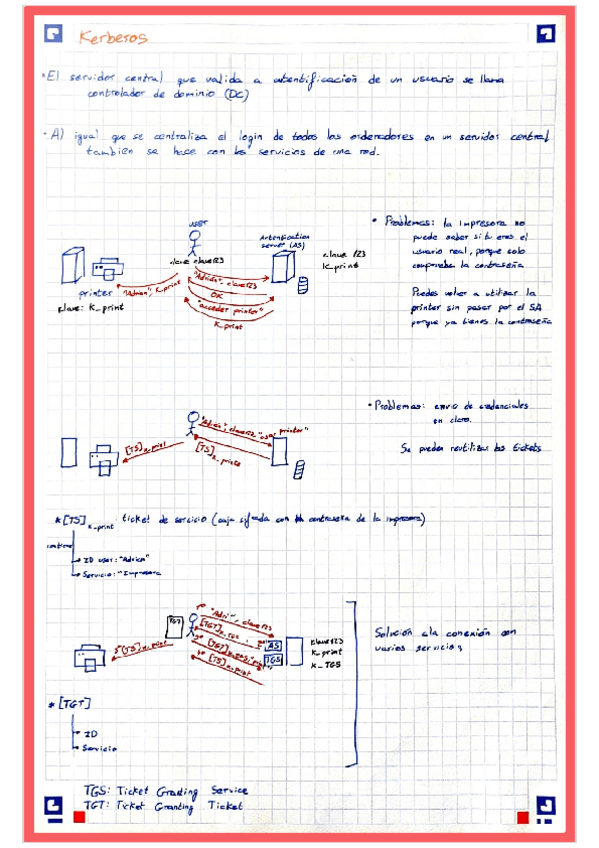 Kerberos
• El servidor central que valida a autentificación de un usuario se llama
controlador de dominio (DC)
• Al igual que se centraliza el login de todos los ordenadores en un servidor central
tambien se hace con los servicios de una red.
USER
clave clave123
Autentification
server (AS)
clave 123
K_print
printer
clave: K_print
"Adrian", K_print
"Adrian", clave123
OK
"acceder printer"
K_print
• Problemas: la impresora no
puede saber si tu eres el
usuario real, porque solo
comprueba la contraseña
Puedes volver a utilizar la
printer sin pasar por el SA
porque ya tienes la contraseña
"Adrian", clave123, "usar printer"
[TS]K_print
[TS]K_print
• Problemas: envio de credenciales
en claro.
Se pueden reutilizar los tickets
* [TS]K_print ticket de servicio (caja cifrada con la contraseña de la impresora)
contiene
→ ID user: "Adrian"
→ Servicio: "Impresora
TGT
1º "Adri", clave123
[TGT]K_TGS
3º [TGT]K_TGS, "print"
4º [TS]K_print
5º [TS]K_print
AS
TGS
clave123
K_print
K_TGS
Solución a la conexión con
varios servicios
* [TGT]
→ ID
→ Servicio
TGS: Ticket Granting Service
TGT: Ticket Granting Ticket